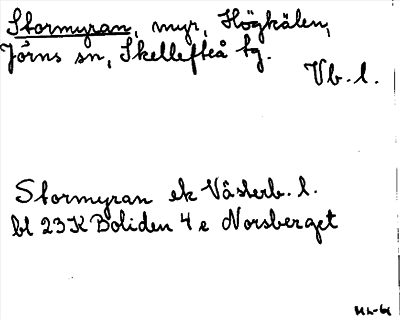 Stormyran, myr, Högkälen,
Jörns sn, Skellefteå tg.
Vb. l.
Stormyran ek Västerb. l.
bl 23K Boliden 4 e Norsberget